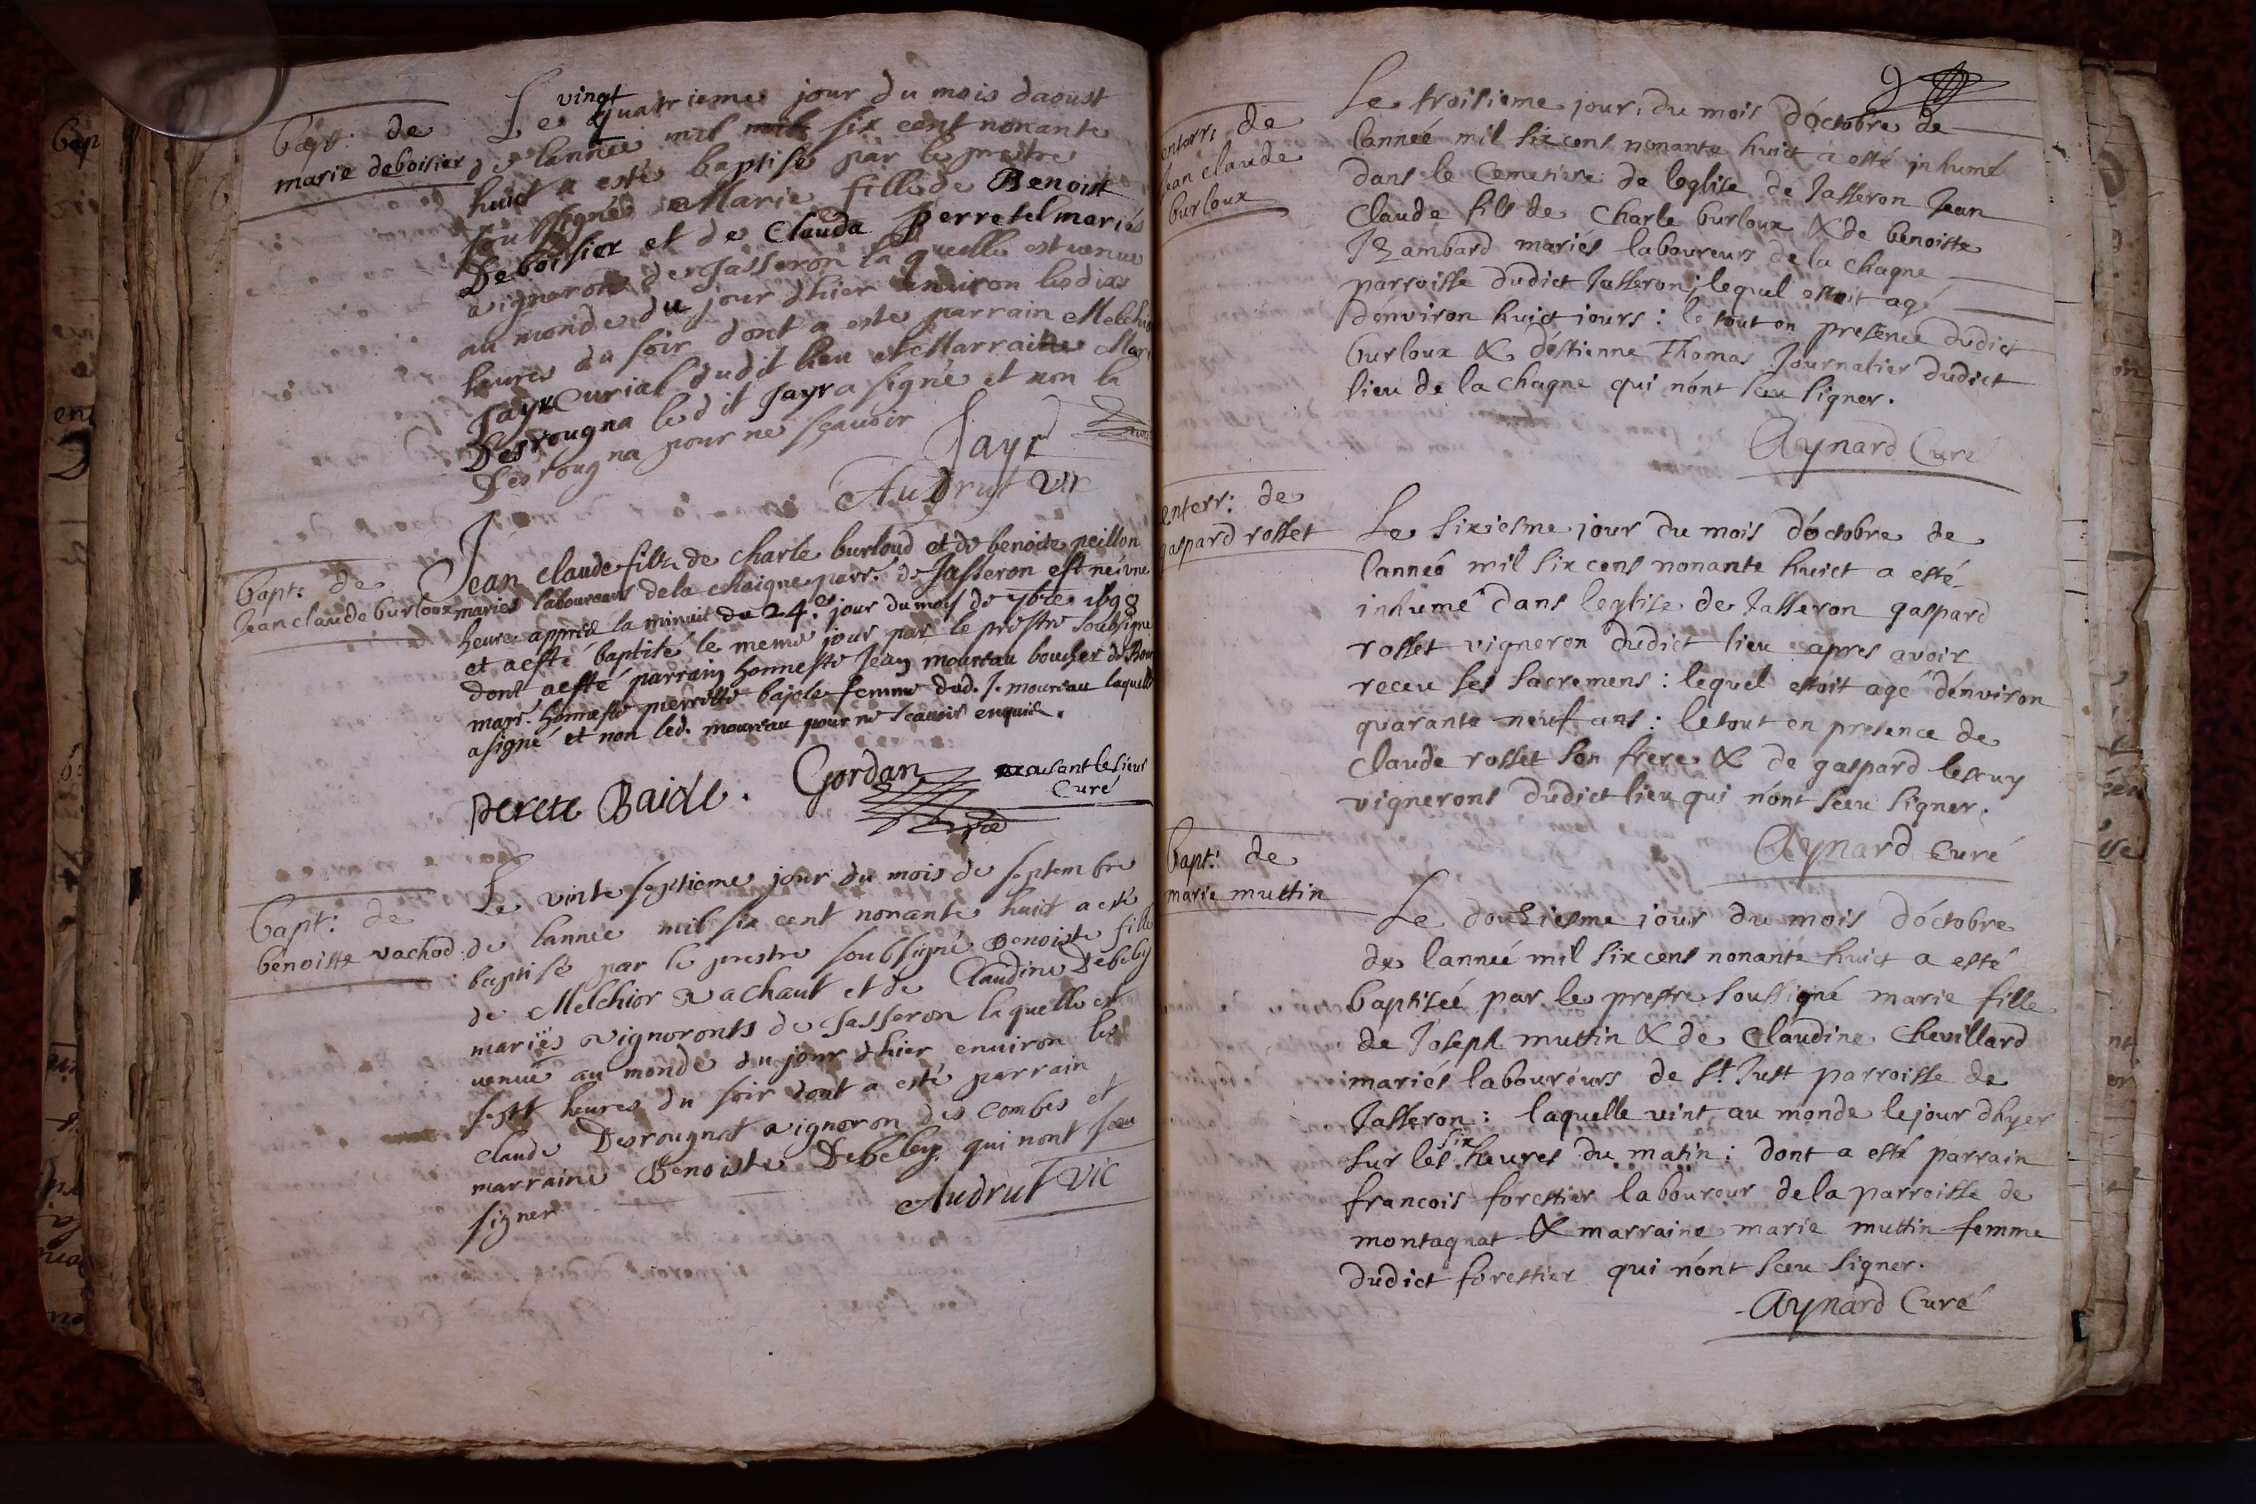 bapt: de
marie deboisier
Le vingt quatrieme jour du mois daoust
de lannée mil six cent nonante
huict a esté baptisé par le prestre
soussigné Marie fille de Benoist
Deboisier et de Clauda perretel mariés
vignerons de Jasseron la quelle est venue
au monde du jour dhier environ les dix
heures du soir dont a esté parrain Melchio
Jayr Curial dudit lieu et Marraine Mari
Desrougna led it Jayr a signé et non la
Desrougna pour ne sçavoir
Jayr
Audrut Vic
bapt: de
Jean claude burloux
Jean claude filz de charle burloud et de benoite peillon
mariés laboureurs de la chaigne parr. de Jasseron est né une
heure apprés la minuit du 24.e jour du moys de 7bre 1698
et a esté baptisé le meme jour par le prestre soubsigné
dont a esté parrain honneste Jean moureau boucher de Bour
marr. honneste pierrette bajole femme dud. J. moureau laquelle
a signé et non led. moureau pour ne scavoir enquis.
Perete Baidl. Gordan excusant le sieur
Curé
bapt: de
benoiste vachod
Le vinte septieme jour du mois de septembre
de lannee mil six cent nonante huit a esté
baptisé par le prestre soubsigné Benoiste fille
de Melchior Vachaut et de Claudine Debeley
mariés vignoronts de Jasseron laquelle est
venue au monde du jour dhier environ les
sept heures du soir dont a esté parrain
claude Desrougnat vignoron des combes et
marraine Benoiste Debeley qui nont sceu
signer
Audrut Vic
9
enterr: de
Jean claude
burloux
Le troisieme jour du mois d'octobre de
lanneé mil six cens nonante huict a esté inhumé
dans le Cemetiere de leglise de Jasseron Jean
Claude fils de Charle burloux & de benoiste
Rambard mariés laboureurs de la Chagne
parroisse dudict Jasseron; lequel estoit agé
d'environ huict jours: le tout en presence dudict
burloux & d'estienne Thomas Journalier dudict
lieu de la chagne qui n'ont sceu signer.
Aynard Curé
enterr: de
gaspard rosset
Le sixiesme jour du mois d'octobre de
lanneé mil six cens nonante huict a esté
inhumé dans leglise de Jasseron gaspard
rosset vigneron dudict lieu apres avoir
receu ses sacremens: lequel estoit agé d'environ
quarante neuf ans: le tout en presence de
claude rosset son frere & de gaspard lescuy
vignerons dudict lieu qui n'ont sceu signer.
Aynard Curé
bapt: de
marie muttin
Le douziesme jour du mois d'octobre
de lanneé mil six cens nonante huict a esté
baptiseé par le prestre soussigné marie fille
de Joseph muttin & de claudine Chevillard
mariés laboureurs de st Just parroisse de
Jasseron: laquelle vint au monde le jour dhyer
sur les six heures du matin: dont a esté parrain
francois forestier laboureur de la parroisse de
montagnat & marraine marie muttin femme
dudict forestier qui n'ont sceu signer.
Aynard Curé